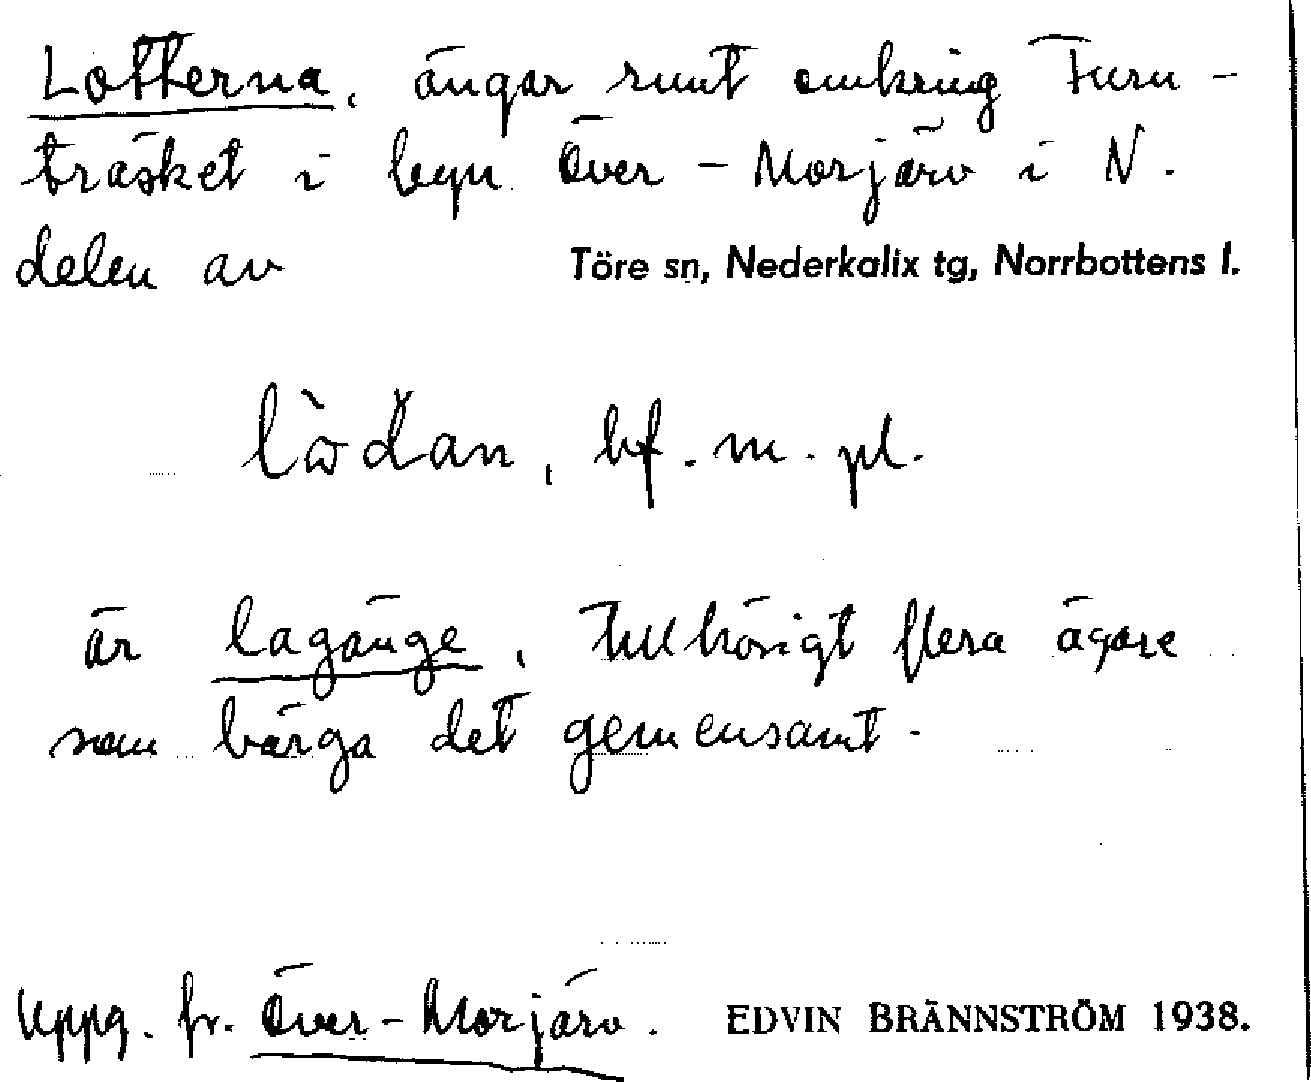 Lotterna, ängar runt omkring Furu-
träsket i byn Över-Morjärv i N.
delen av Töre sn, Nederkalix tg, Norrbottens l.
bf. m. pl.
är lagänge, tillhörigt flera ägare
som bärga det gemensamt.
Uppg. fr. Över-Morjärv. EDVIN BRÄNNSTRÖM 1938.